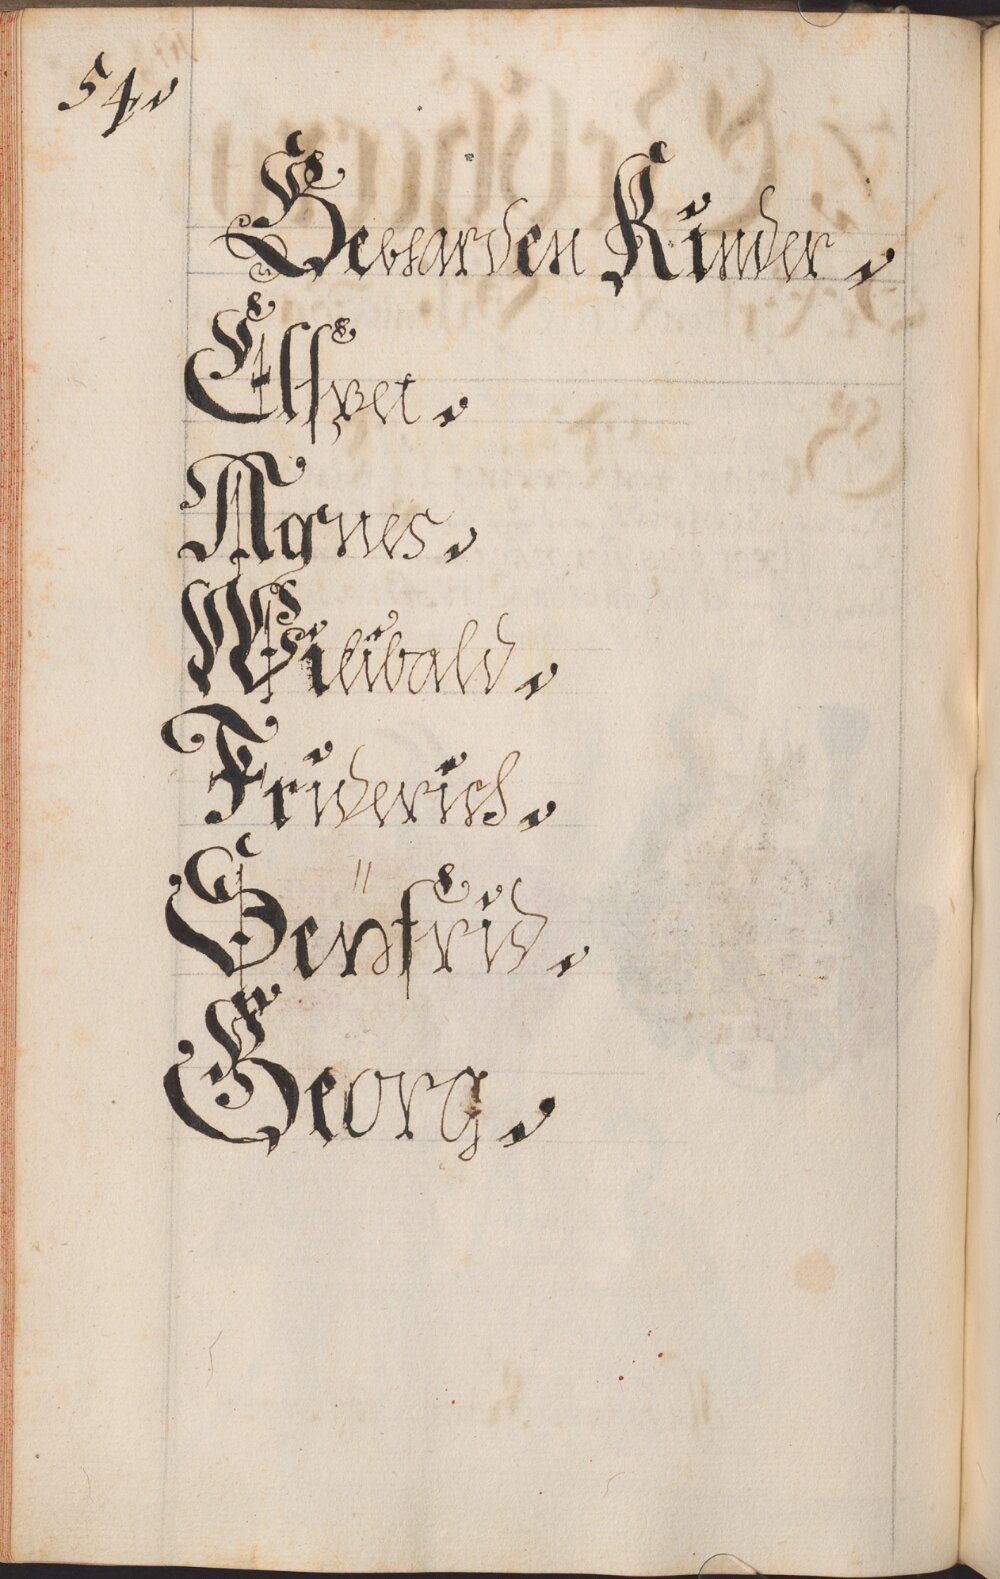 54.
Gebharden Kinder.
Elsbet.
Agnes.
Wilibald.
Friderich.
Seÿfrid.
Georg.